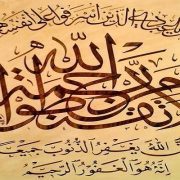 يعبادي الذين أسرفوا على أنفسهم
لا تقنطوا من رحمة الله
إن الله يغفر الذنوب جميعا
إنه هو الغفور الرحيم